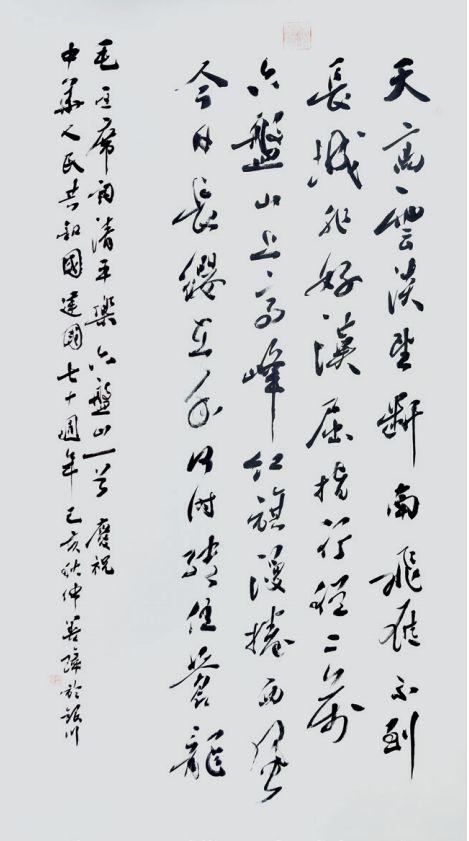 天高雲淡望斷南飛雁不到
長城非好漢屈指行程二萬
六盤山上高峰紅旗漫捲西風
今日長纓在手何時縛住蒼龍
毛主席詞清平樂六盤山一首 慶祝
中華人民共和國建國七十週年 己亥秋仲善璋於銀川